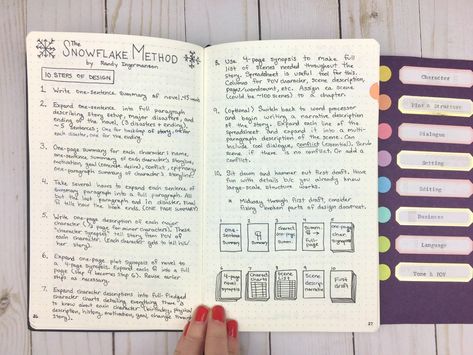 The
SNOWFLAKE METHOD
by Randy Ingermanson
10 STEPS OF DESIGN
1. Write one-sentence summary of novel,
2. Expand one-sentence into full paragraph
describing story setup, major disasters, and
ending of novel. (3 disasters + ending)
~5 sentences: One for backup of story, one
each disaster, one for the ending.
3. One-page summary for each character: name,
one-sentence, summary of each character's storyline,
motivation, goal (concrete desire), conflict, epiphany,
one-paragraph summary of character's storyline.
4. Take several hours to expand each sentence of
summary paragraph into a full paragraph. All
but the last paragraph end in disaster, final
¶ tells how story ends. (ONE page summary)
5. Write one-page description of each major
character (½ page for minor characters). These
"character synopses" tell story from POV of
each character. (Each character gets to tell his/
her story).
6. Expand the one-page plot synopsis of novel to
a 4-page synopsis. Expand each ¶ into a full
page (the 4 from step 4). Revise earlier
steps as needed.
7. Expand character descriptions into full-fledged
character charts detailing everything there is
to know about each character (birthday, physical
description, history, motivation, goal, change through
story).
26
8. Use 4-page synopsis to make full
list of scenes needed throughout the
story. Spreadsheet is useful tool for this.
Columns for POV character, scene description,
pages/wordcount, etc. Assign ea scene
(could be ~100 scenes) to chapter.
9. (optional) Switch back to word processor
and begin writing a narrative description
of the story. Expand each line of the
spreadsheet and expand it into a multi-
paragraph description of the scene. Can
include cool dialogue, conflict (essential). Scrub
scene if there is no conflict. Or add a
conflict.
10. Sit down and hammer out first draft. Have
fun with details b/c you already know
large-scale structure works.
* Midway through first draft, consider
fixing broken parts of design document.
1 2 3 4 5
one-sentence summary
¶ summary
character one-page summ.
summ. ¶ → full-page
one-page char synopsis
6 7 8 9 10
4-page novel synopsis
character charts
Scene List
Scene design narrative
First draft
27
Character
Plot & Structure
Dialogue
Setting
Editing
Business
Language
Tone & POV